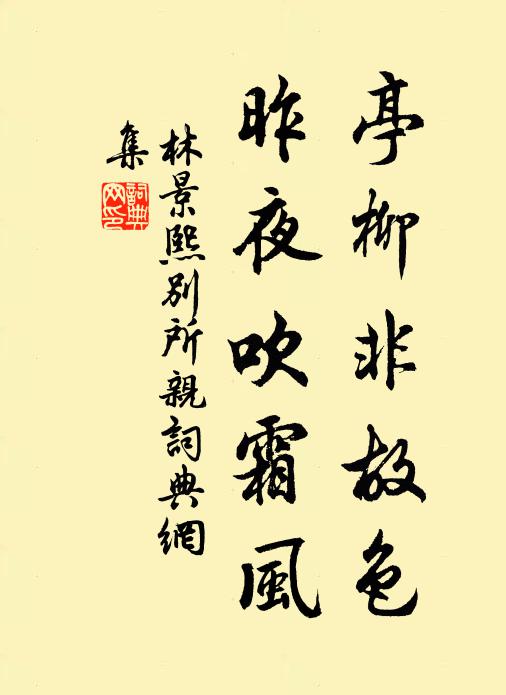 亭柳非故色
昨夜吹霜風
林景熙別所親詞典網
集
詞典网印